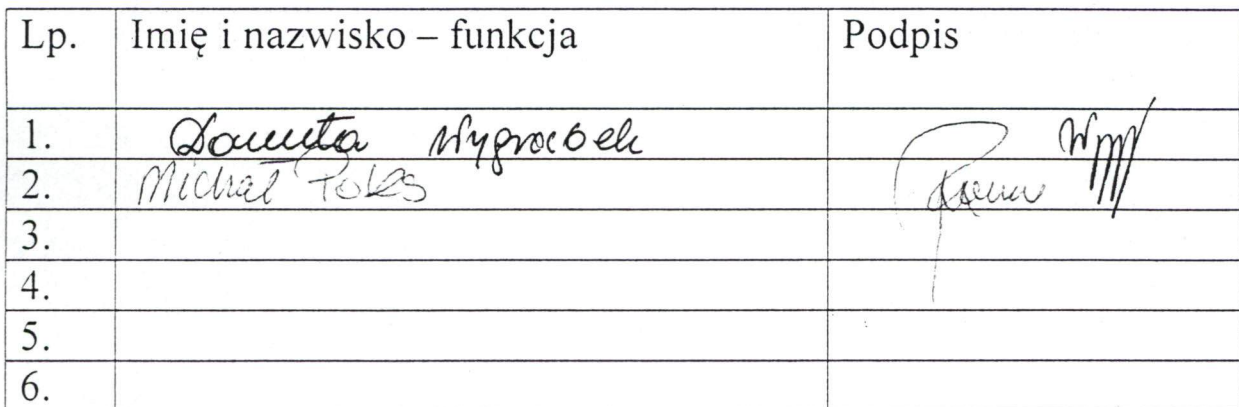 Lp. Imię i nazwisko – funkcja Podpis
1. Danuta Wygrabek
2. Michał
3.
4.
5.
6.